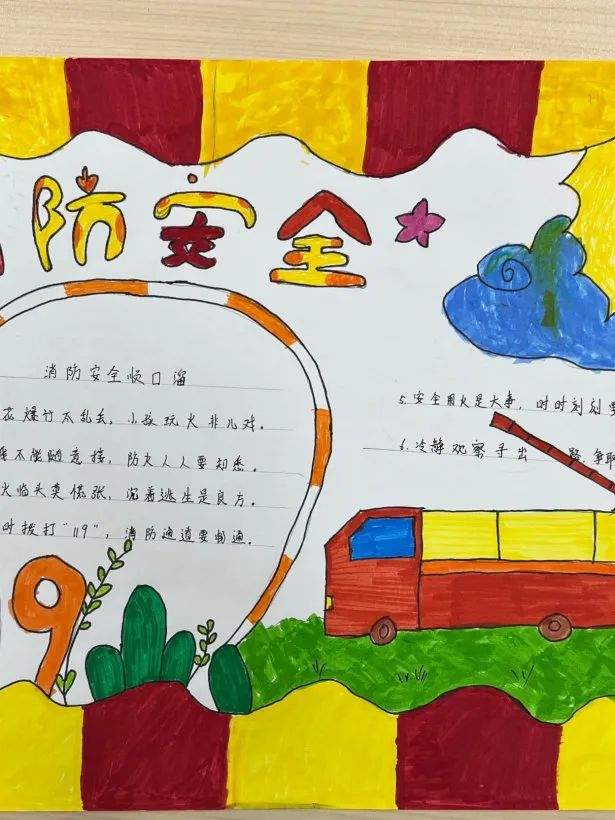 防安全
消防安全顺口溜
花爆竹不乱丢，小孩玩火非儿戏。
不能随意接，防火人人要知悉。
火临头莫慌张，沉着逃生是良方。
时拨打“119”，消防通道要畅通。
5.安全用火是大事，时时刻刻要
6.冷静观察寻出 路 争取
9